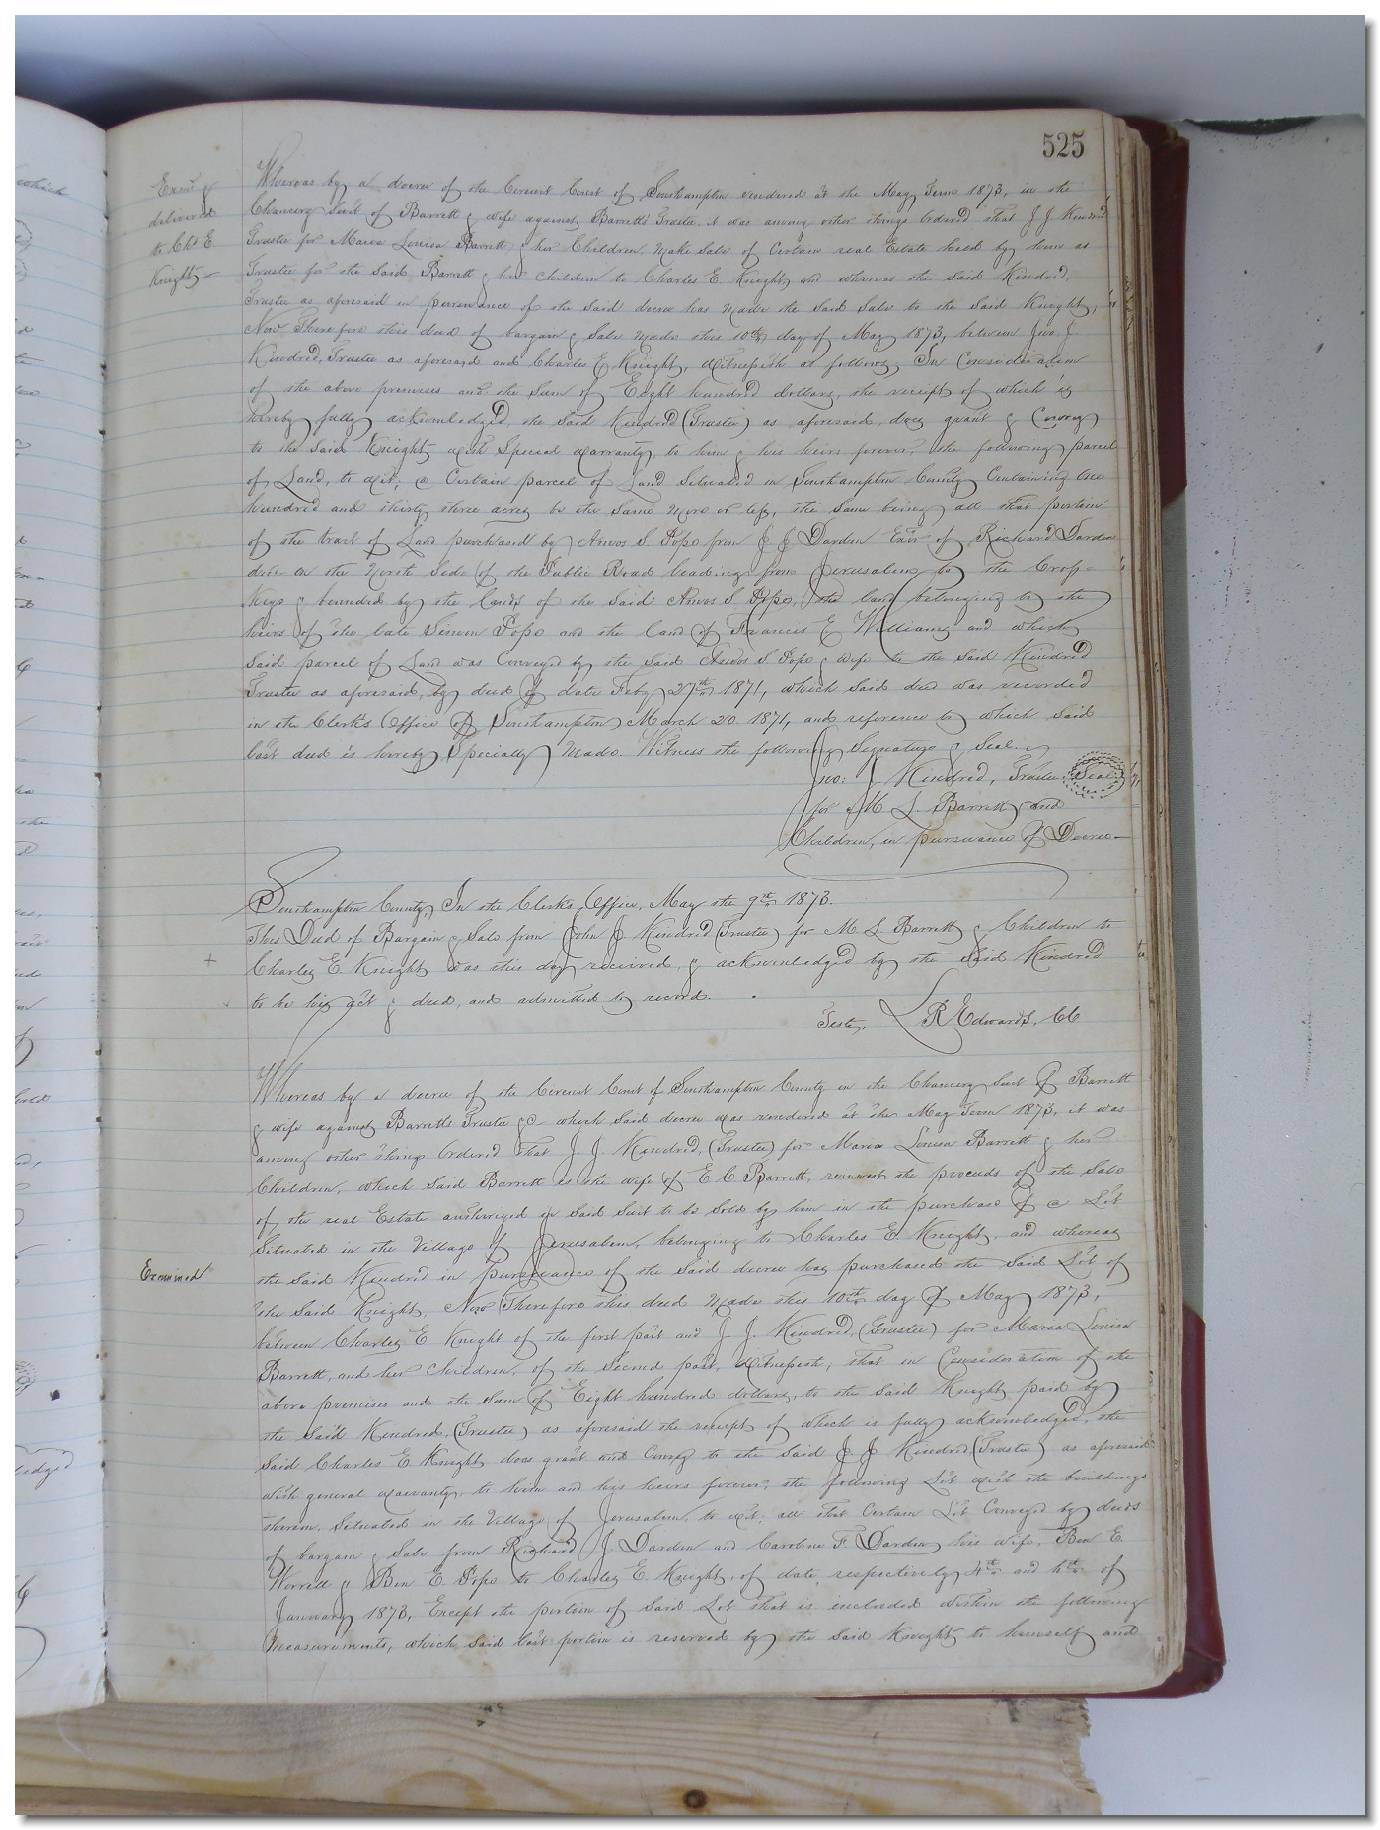 525
Exam'd &
delivered
to Chs E.
Knight
Whereas by a decree of the Circuit Court of Southampton rendered at the May Term 1873, in the
Chancery Suit of Barrett & wife against Barrett's Trustee, it was among other things Ordered that J J Kindred
Trustee for Maria Louisa Barrett & her Children, make Sale of Certain real Estate held by him as
Trustee for the Said Barrett & her children to Charles E. Knight, and whereas the Said Kindred,
Trustee as aforesaid in pursuance of the Said decree has made the Said Sale to the Said Knight,
Now Therefore this deed of bargain & Sale made this 10th day of May 1873, between Jno J
Kindred, Trustee as aforesaid and Charles E. Knight, Witnesseth as follows, In Consideration
of the above premises and the Sum of Eight hundred dollars, the receipt of which is
hereby fully acknowledged, the Said Kindred (Trustee) as aforesaid, does grant & Convey
to the Said Knight with Special warranty, to him & his heirs forever, the following parcel
of Land, to wit; a Certain parcel of Land Situated in Southampton County Containing two
hundred and thirty three acres be the Same more or less, the Same being all that portion
of the tract of Land purchased by Amos S Pope from J J Darden Exor of Richard Darden
dec on the North Side of the Public Road leading from Jerusalem to the Cross
Keys & bounded by the lands of the Said Amos S. Pope, the land belonging to the
heirs of the late Simon Pope and the land of Francis E Williams and which
Said parcel of Land was Conveyed by the Said Amos S Pope & wife to the Said Kindred
Trustee as aforesaid, by deed of date Feby 27th 1871, which Said deed was recorded
in the Clerk's Office of Southampton March 20 1871, and reference to which Said
last deed is hereby Specially made. Witness the following Signature & Seal.
Jno: J Kindred, Trustee Seal
for M L Barrett and
Children, in pursuance of Decree
Southampton County, In the Clerk's Office, May the 9th 1873.
This Deed of Bargain & Sale from John J Kindred (Trustee) for M L Barrett & Children to
+ Charles E. Knight was this day received, & acknowledged by the Said Kindred
to be his act & deed, and admitted to record.
Teste, L R Edwards, CC
Whereas by a decree of the Circuit Court of Southampton County in the Chancery Suit of Barrett
& wife against Barrett's Trustee &c which Said decree was rendered at the May Term 1873, it was
among other things Ordered that J J Kindred, (Trustee) for Maria Louisa Barrett & her
Children, which Said Barrett is the wife of E C Barrett, reinvest the proceeds of the Sale
of the real Estate authorized in Said Suit to be Sold by him in the purchase of a Lot
Situated in the Village of Jerusalem, belonging to Charles E. Knight, and whereas
Examined
the Said Kindred in pursuance of the Said decree has purchased the Said Lot of
the Said Knight, Now Therefore this deed made this 10th day of May 1873,
between Charles E Knight of the first part and J. J. Kindred, (Trustee) for Maria Louisa
Barrett, and her Children, of the Second part, Witnesseth, that in Consideration of the
above premises and the Sum of Eight hundred dollars, to the Said Knight paid by
the Said Kindred, (Trustee) as aforesaid the receipt of which is fully acknowledged, the
Said Charles E Knight does grant and Convey to the Said J. J Kindred (Trustee) as aforesaid
with general warranty, to him and his heirs forever, the following Lot with the buildings
thereon, Situated in the Village of Jerusalem, to wit; all that Certain Lot Conveyed by deeds
of bargain & Sale from Richard J. Darden and Caroline F. Darden, his wife, Ben E.
Worrell & Ben E. Pope to Charles E. Knight, of date respectively 4th and 4th of
January 1873, Except the portion of Said Lot that is included within the following
measurements, which Said last portion is reserved by the Said Knight to himself and